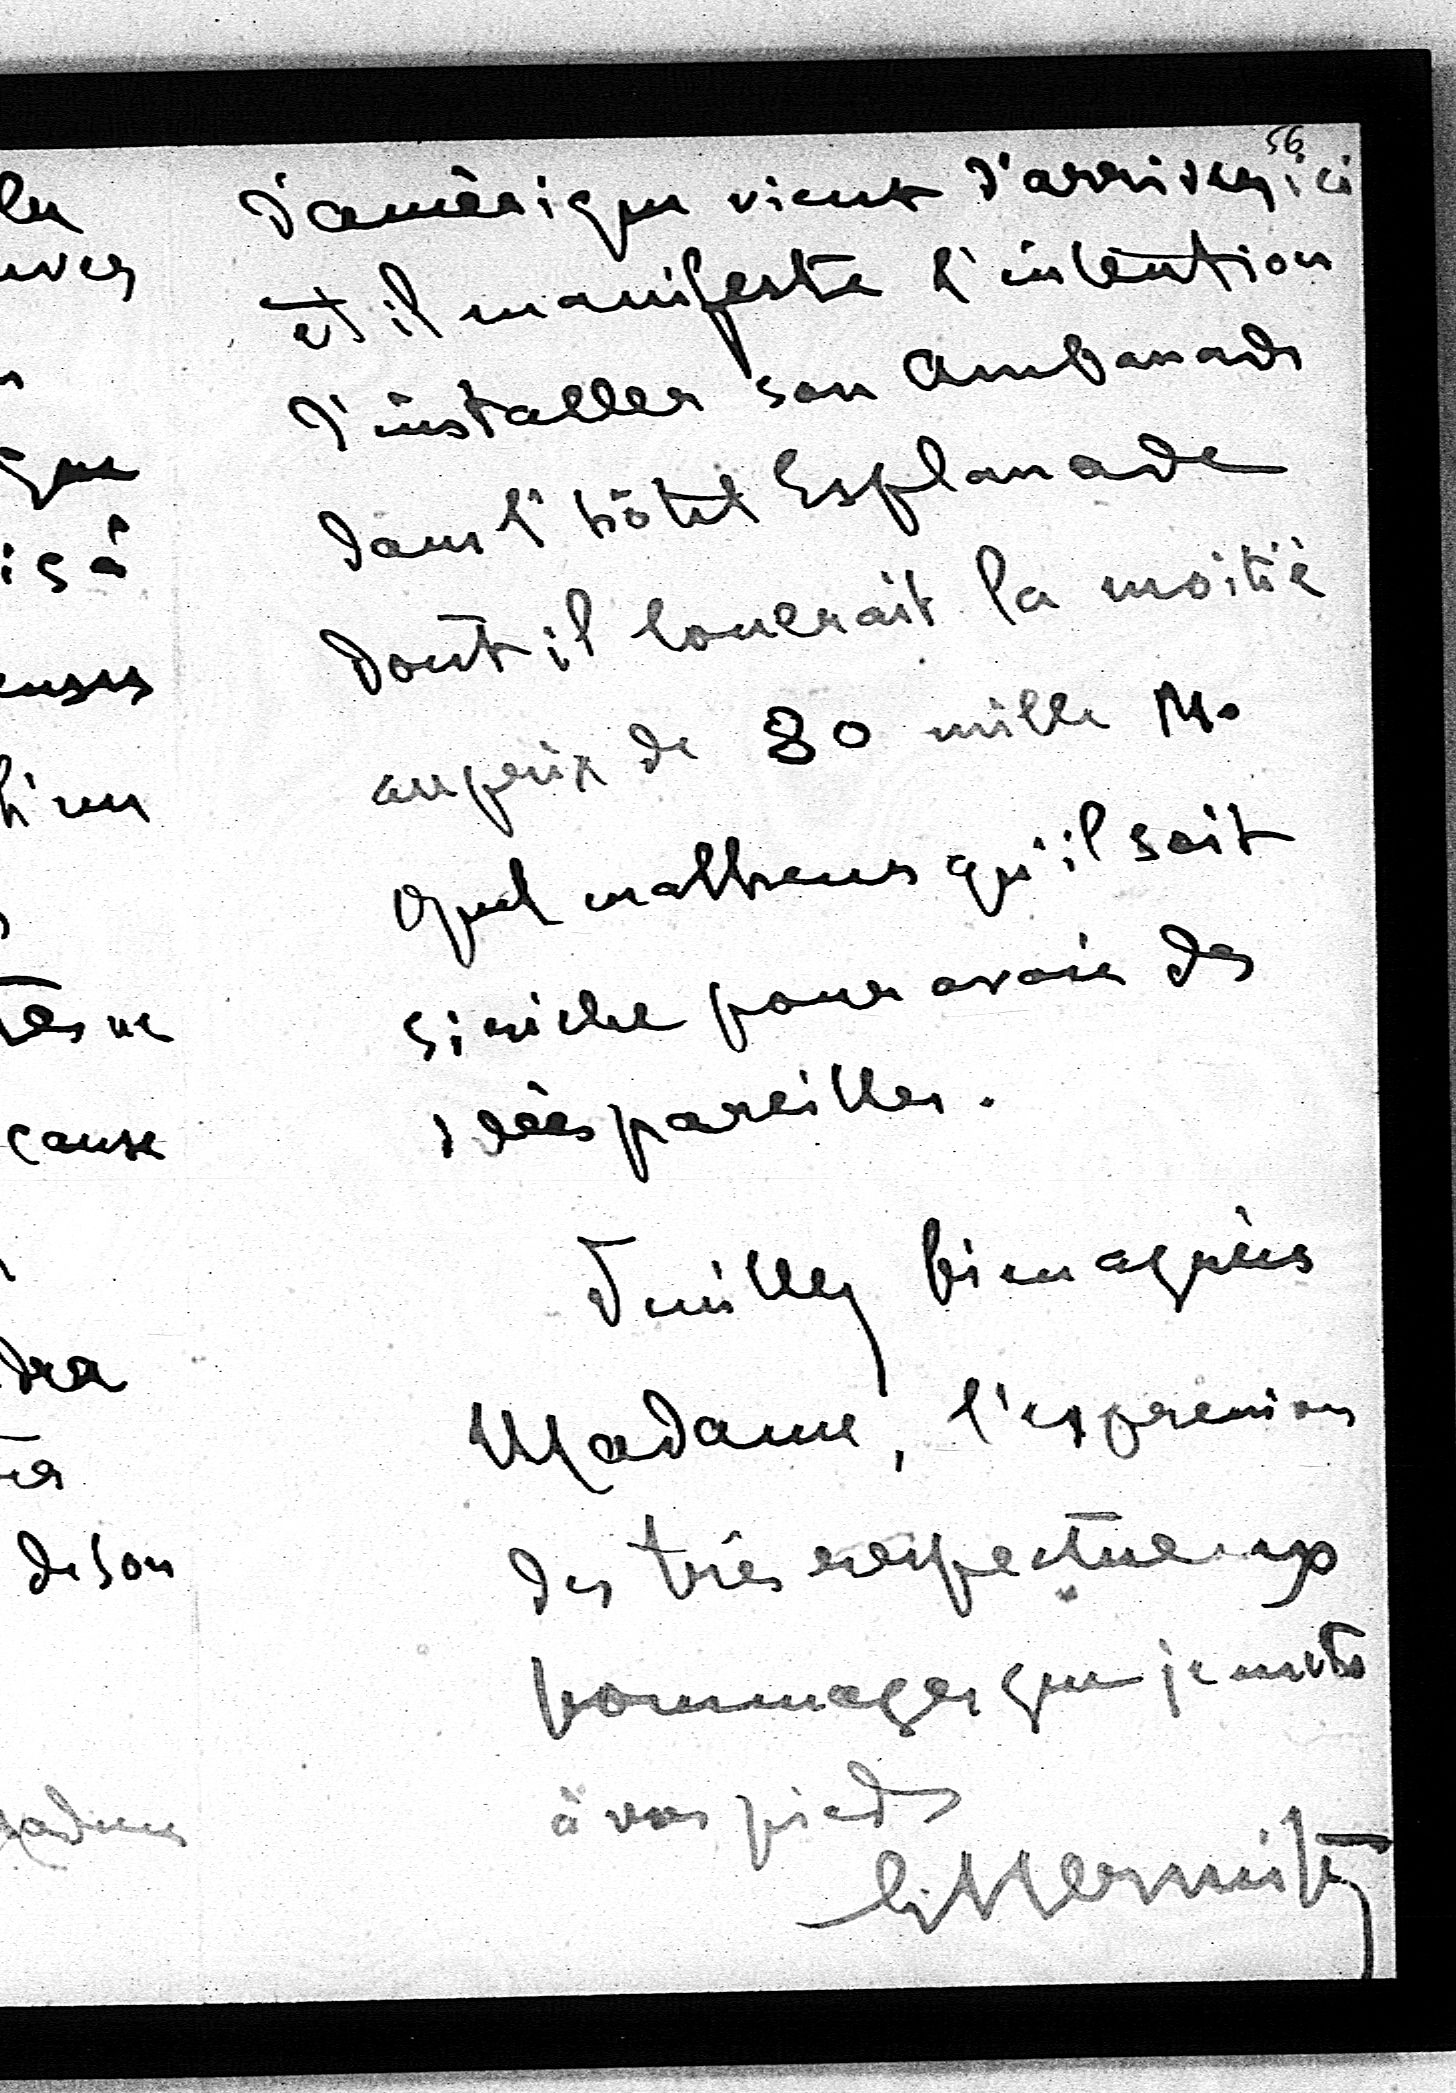 56
d'amérique vient d'arriver ici
et il manifeste l'intention
d'installer son Ambassade
dans l'hôtel Esplanade
dont il louerait la moitié
au prix de 80 mille M.
Quel malheur qu'il soit
si riche pour avoir des
idées pareilles.
Veuillez bien agréer
Madame, l'expression
des très respectueux
hommages que je mets
à vos pieds
que
is à
enses
d'un
cause
dra
de son